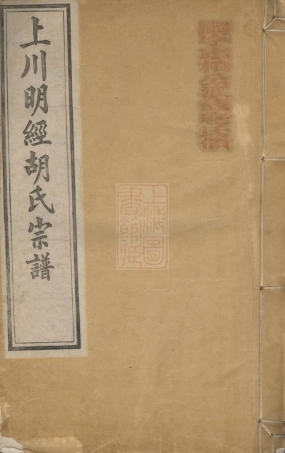 上川明經胡氏宗譜
上海圖
書館藏